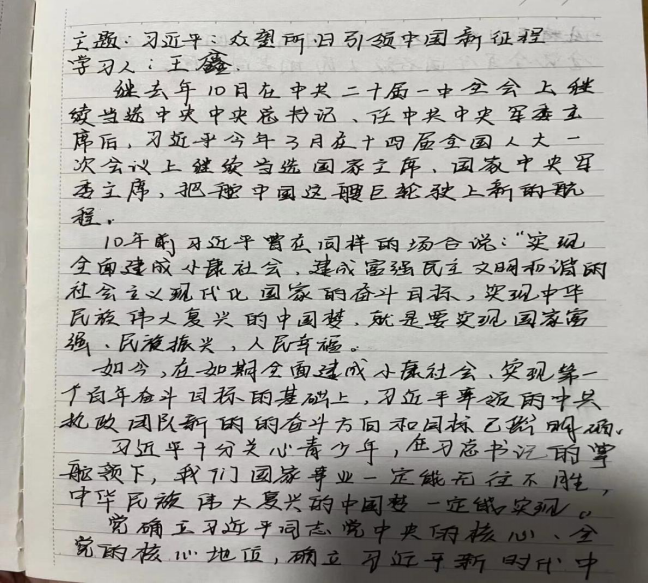 主题:习近平:众望所归引领中国新征程
学习人:王鑫.
继去年10月在中共二十届一中全会上继
续当选中央中央总书记、任中共中央军委主
席后,习近平今年3月在十四届全国人大一
次会议上继续当选国家主席、国家中央军
委主席,把舵中国这艘巨轮驶上新的航
程。
10年前习近平曾在同样的场合说:“实现
全面建成小康社会、建成富强民主文明和谐的
社会主义现代化国家的奋斗目标,实现中华
民族伟大复兴的中国梦,就是要实现国家富
强、民族振兴,人民幸福。
如今,在如期全面建成小康社会、实现第一
个百年奋斗目标的基础上,习近平率领的中共
执政团队新的的奋斗方向和目标已经明确。
习近平十分关心青少年,在习总书记的掌
舵领下,我们国家事业一定能无往不胜,
中华民族伟大复兴的中国梦一定能实现。
党确立习近平同志党中央的核心、全
党的核心地位,确立习近平新时代中